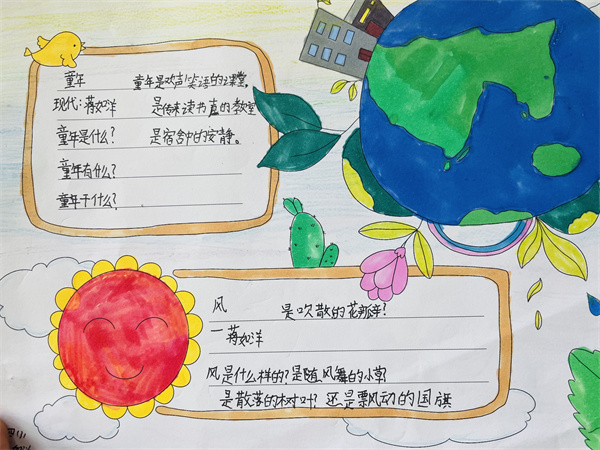 童年 童年是欢声笑语的课堂,
现代:蒋如洋 是传来读书声的教室
童年是什么? 是宿舍中的安静。
童年有什么?
童年干什么?
风 是吹散的花瓣!
一蒋如洋
风是什么样的?是随风舞的小草
是散落的树叶?还是飘动的国旗